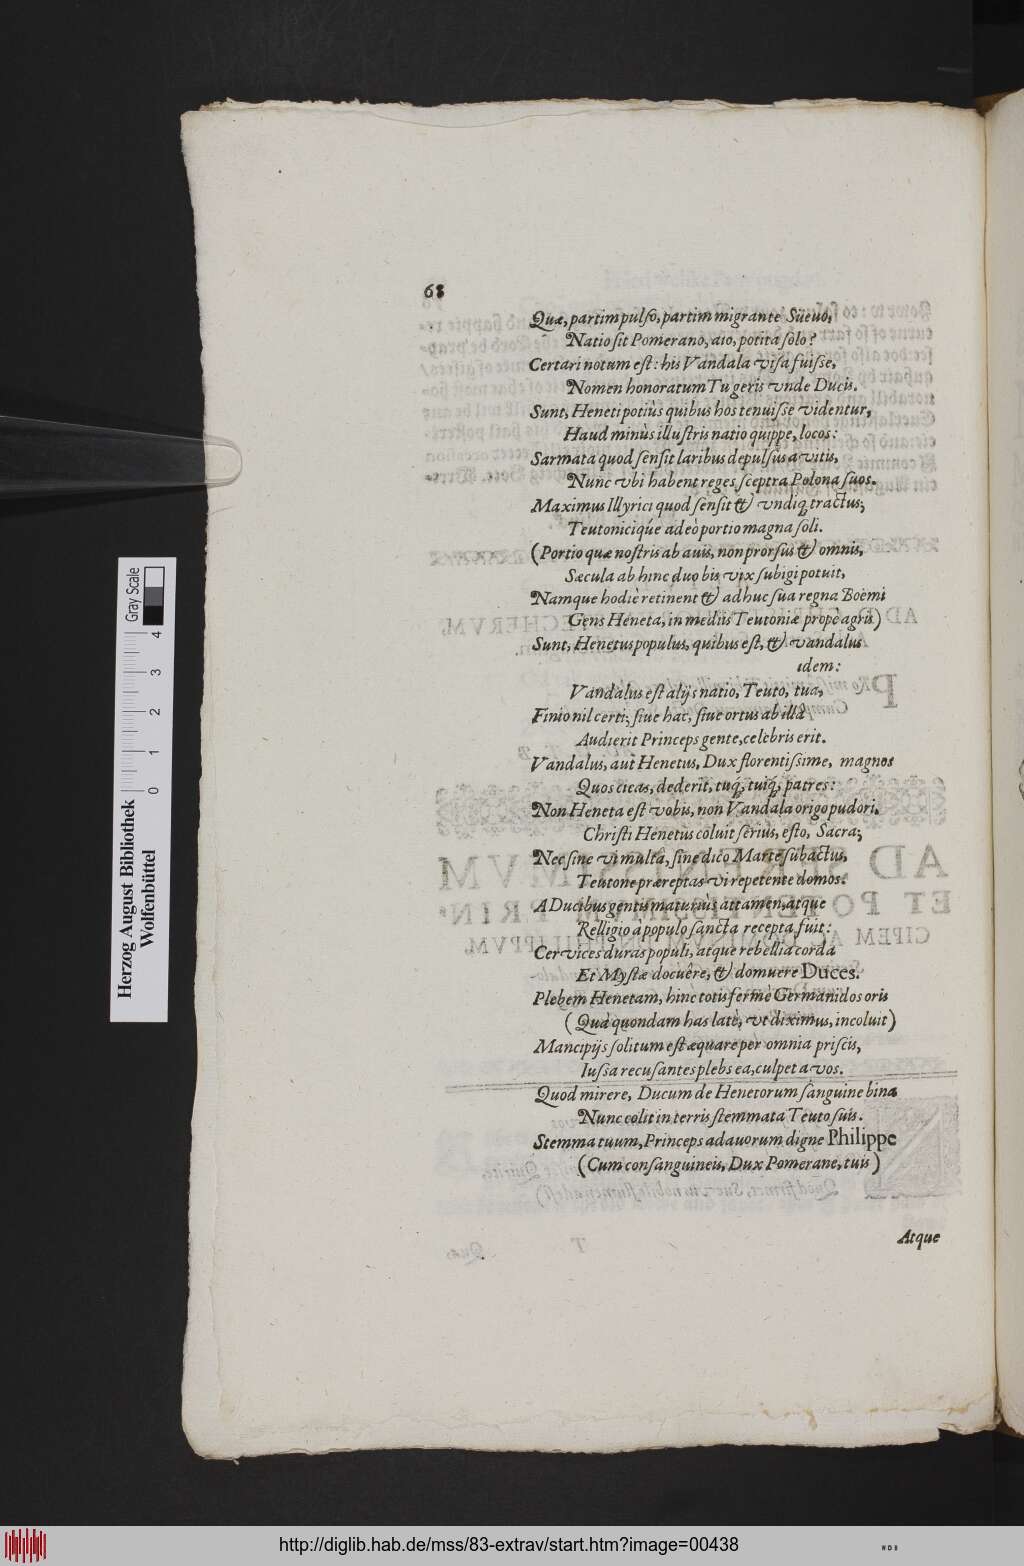 68
Quæ, partim pulso, partim migrante Süeuo,
Natio sit Pomerano, aio, potita solo?
Certari notum est: his Vandala visa fuisse,
Nomen honoratum Tu geris vnde Ducis.
Sunt, Heneti potiùs quibus hos tenuisse videntur,
Haud minùs illustris natio quippe, locos:
Sarmata quod sensit laribus depulsus avitis,
Nunc vbi habent reges sceptra Polona suos.
Maximus Illyrici quod sensit & vndiq; tractus;
Teutoniciq́ue adeò portio magna soli.
(Portio quæ nostris ab avis, non prorsus & omnis,
Sæcula ab hinc duo bis vix subigi potuit,
Namque hodiè retinent & adhuc sua regna Boëmi
Gens Heneta, in mediis Teutoniæ propè agris)
Sunt, Henetus populus, quibus est, & Vandalus
idem:
Vandalus est alijs natio, Teuto, tua,
Finio nil certi; siue hac, siue ortus ab illâ
Audierit Princeps gente, celebris erit.
Vandalus, aut Henetus, Dux florentissime, magnos
Quos cieas, dederit, tuq́;, tuiq́;, patres:
Non Heneta est vobis, non Vandala origo pudori.
Christi Henetus coluit seriùs, esto, Sacra;
Nec sine vi multa, sine dico Marte subactus,
Teutone præreptas vi repetente domos.
A Ducibus gentis maturiùs attamen, atque
Relligio a populo sancta recepta fuit:
Cervices duras populi, atque rebellia corda
Et Mystæ docuêre, & domuere Duces.
Plebem Henetam, hinc totis fermè Germanidos oris
(Quà quondam has latè, vt diximus, incoluit)
Mancipijs solitum est æquare per omnia priscis,
Iussa recusantes plebs ea, culpet avos.
Quod mirere, Ducum de Henetorum sanguine bina
Nunc colit in terris stemmata Teuto suis.
Stemma tuum, Princeps adauorum digne Philippe
(Cum consanguineis, Dux Pomerane, tuis)
Atque
Herzog August Bibliothek
Wolfenbüttel
0 1 2 3 4
Gray Scale
http://diglib.hab.de/mss/83-extrav/start.htm?image=00438